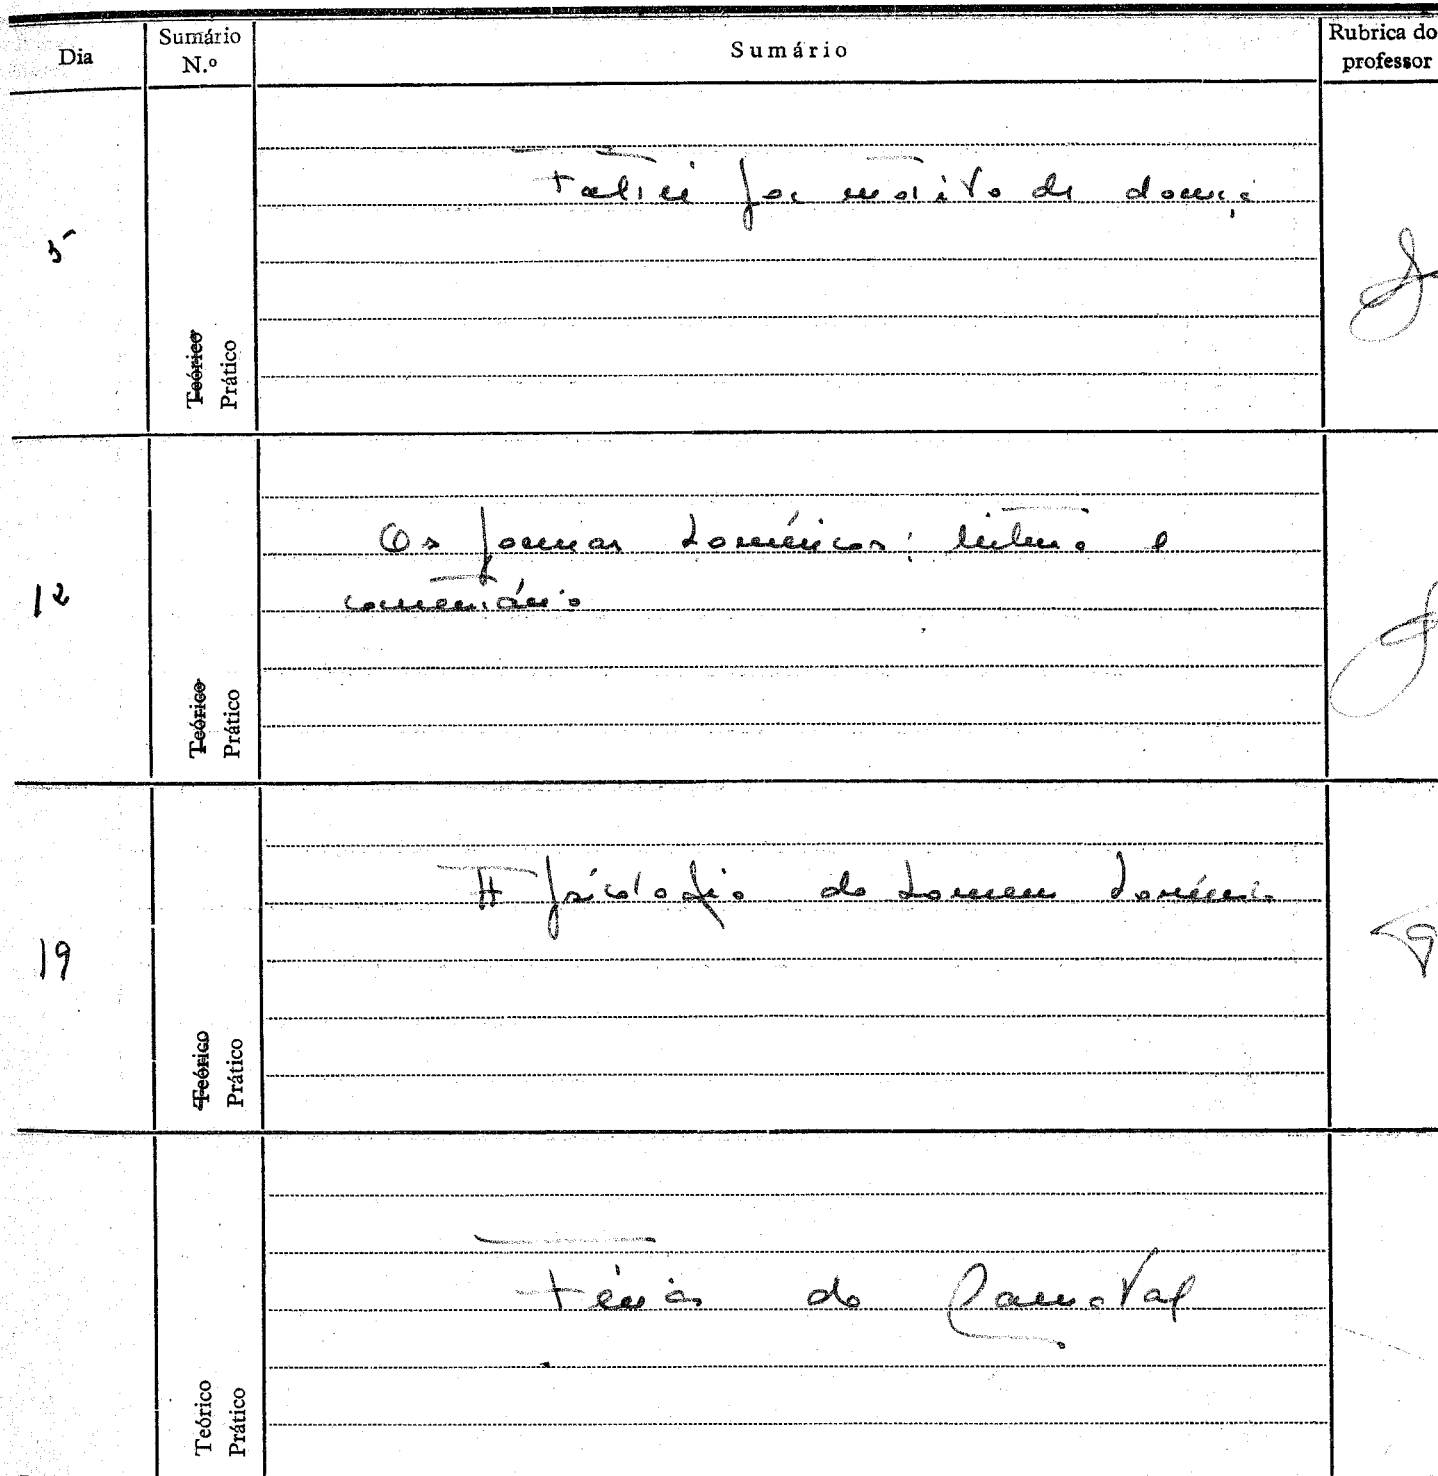 Dia
Sumário N.º
Sumário
Rubrica do professor
5
Faltei por motivo de doença
Teórico
Prático
12
Os poemas homéricos: leitura e
comentário
Teórico
Prático
19
A psicologia do homem homérico
Teórico
Prático
Férias do Carnaval
Teórico
Prático